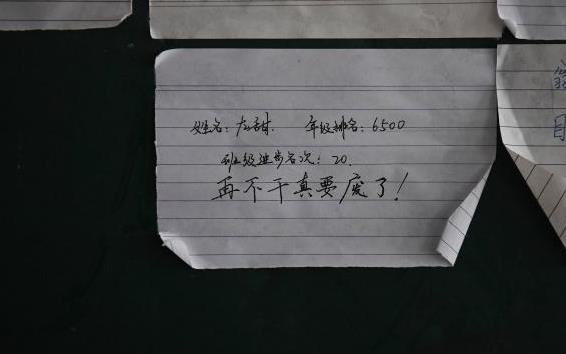 姓名：左甜. 年级排名：6500
班级进步名次：20.
再不干真要废了！